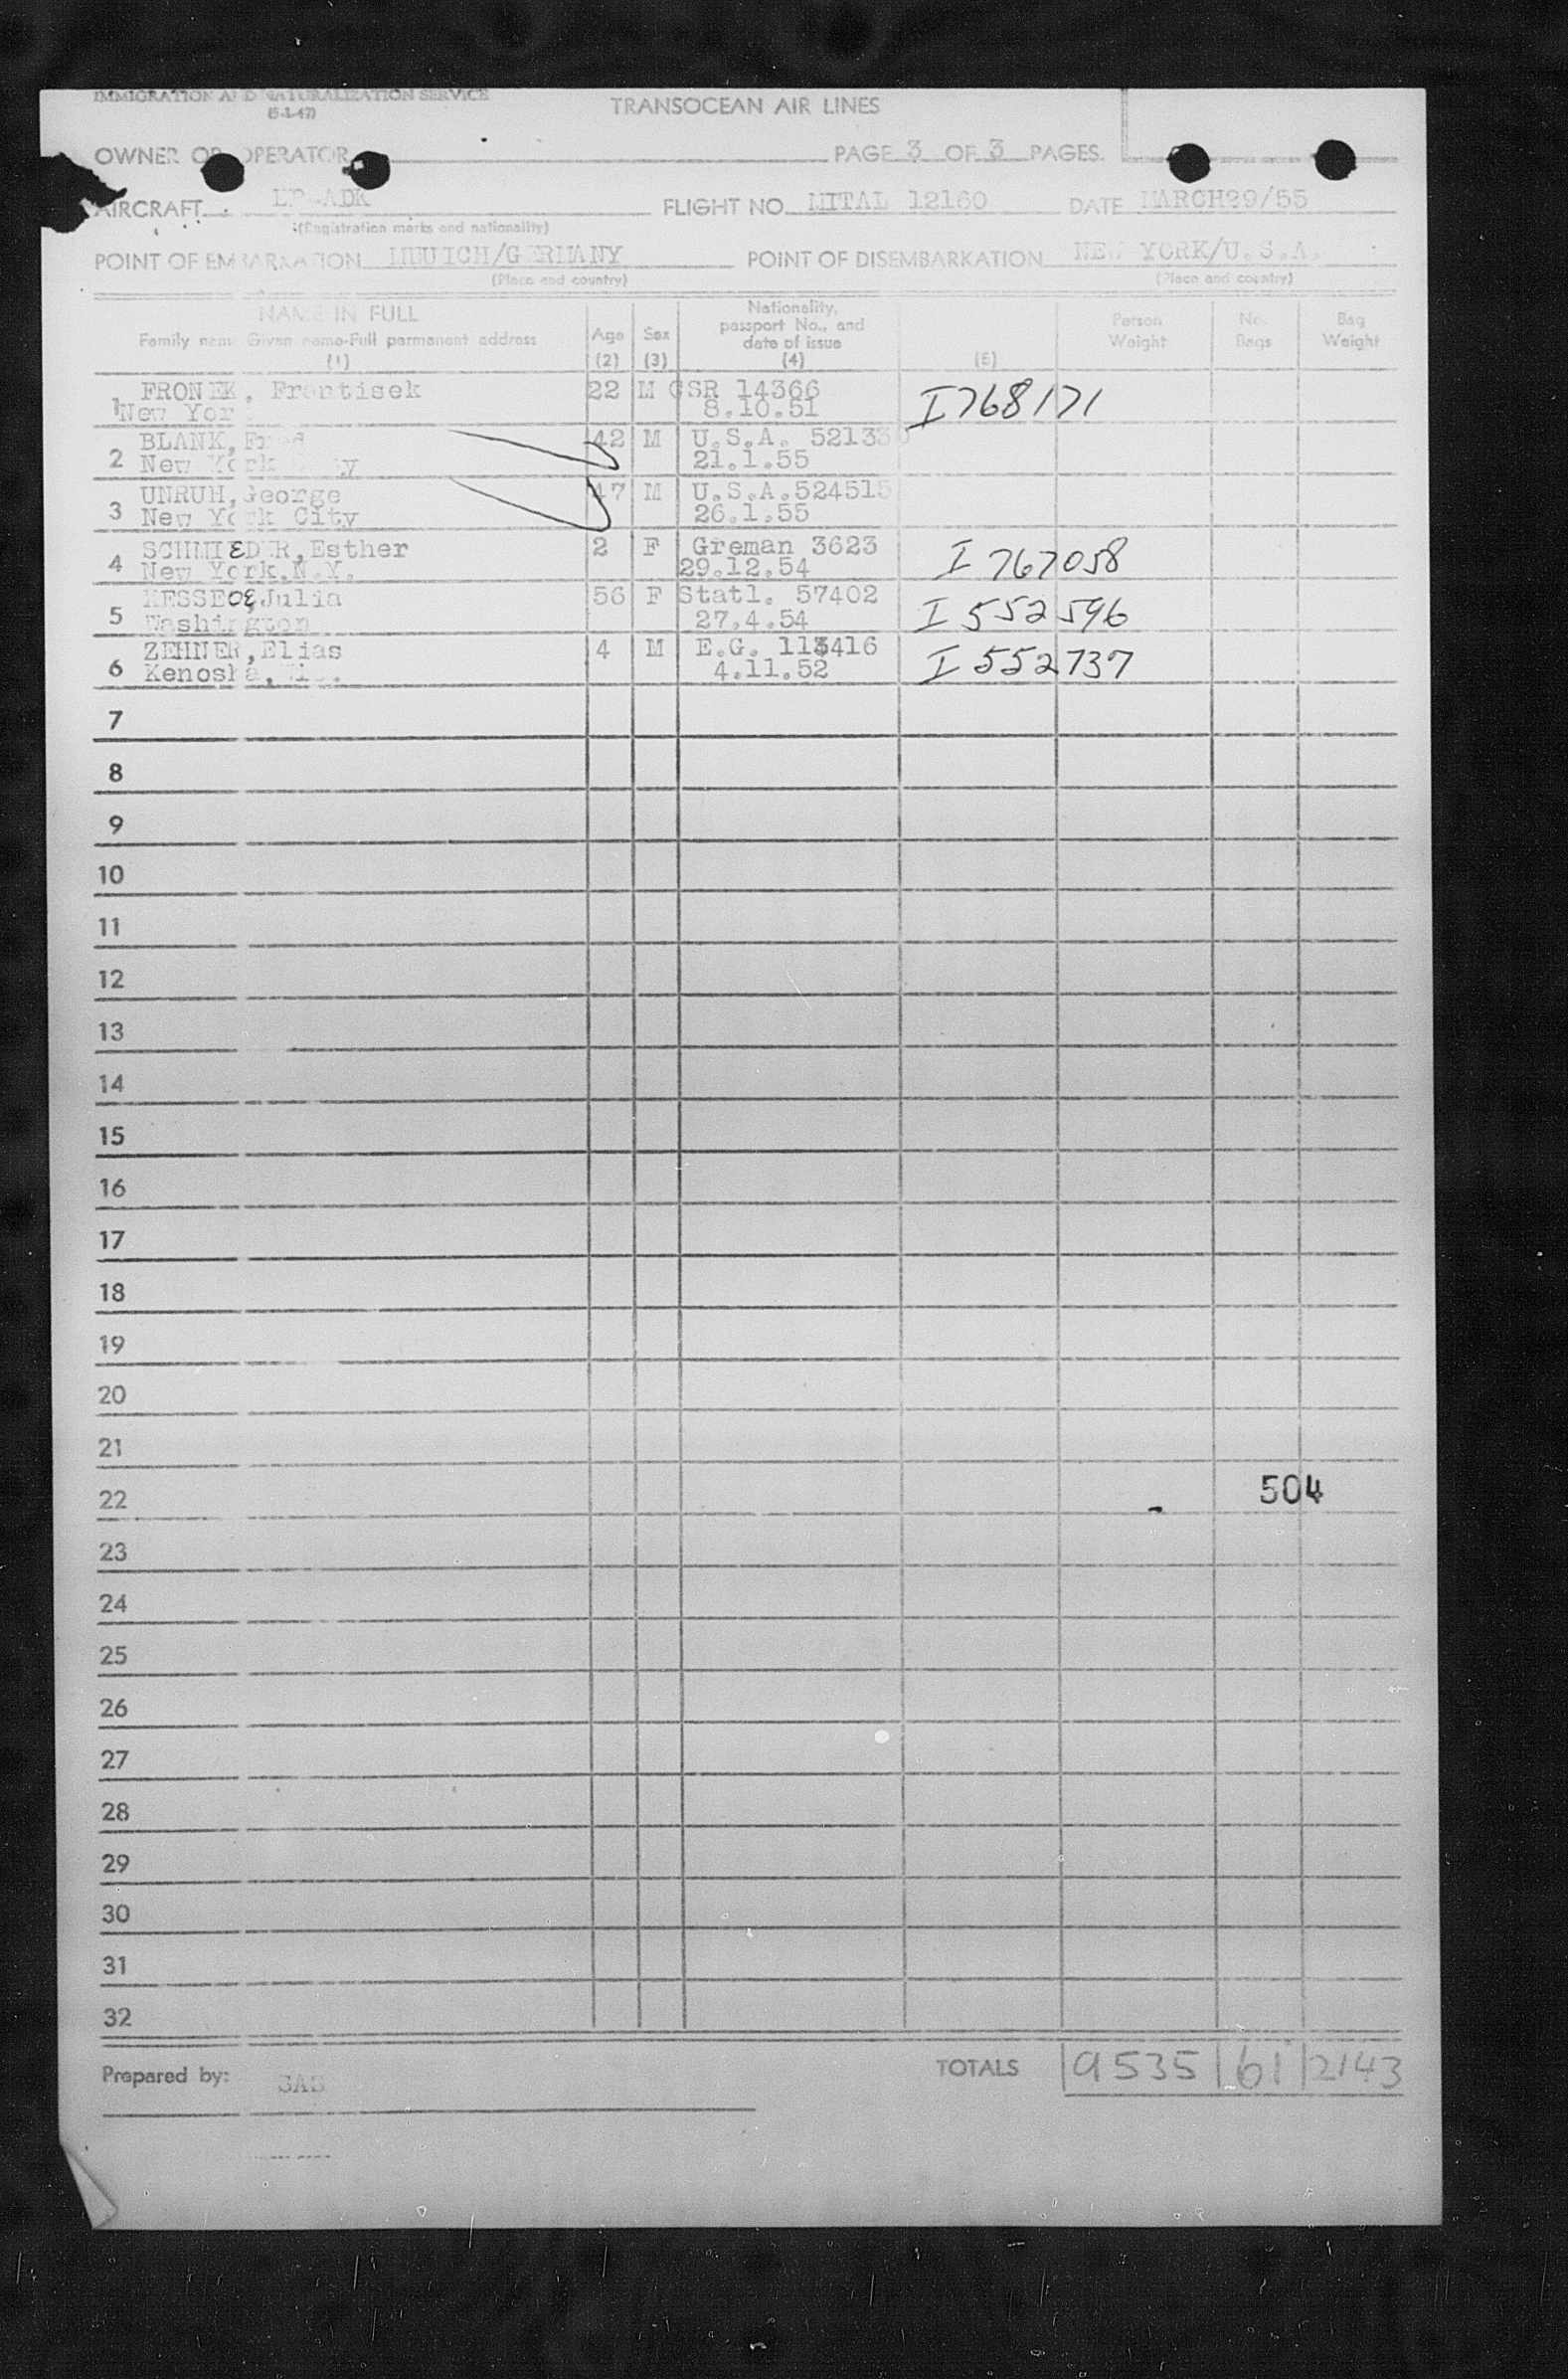 IMMIGRATION AND NATURALIZATION SERVICE
(5-1-47)
TRANSOCEAN AIR LINES
OWNER OR OPERATOR PAGE 3 OF 3 PAGES.
AIRCRAFT FLIGHT NO. MITAL 12160 DATE MARCH29/55
(Registration marks and nationality)
POINT OF EMBARKATION /GERMANY POINT OF DISEMBARKATION NEW YORK/U.S.A.
(Place and country) (Place and country)
NAME IN FULL
Family name Given name-Full permanent address
(1)
Age
(2)
Sex
(3)
Nationality,
passport No., and
date of issue
(4)
(5)
Person
Weight
No.
Bags
Bag
Weight
1 FRONEK, Frantisek 22 M CSR 14366 I768171
New York 8.10.51
2 BLANK, Fred 42 M U.S.A. 52133
New York City 21.1.55
3 UNRUH, George 47 M U.S.A.524515
New York City 26.1.55
4 SCHMIEDER, Esther 2 F Greman 3623 I 767058
New York.N.Y. 29.12.54
5 Julia 56 F Statl. 57402 I 552596
Washington 27.4.54
6 ZEHNER, Elias 4 M E.G. 113416 I 552737
Kenosha, 4.11.52
7
8
9
10
11
12
13
14
15
16
17
18
19
20
21
22 504
23
24
25
26
27
28
29
30
31
32
Prepared by: TOTALS 9535 61 2143